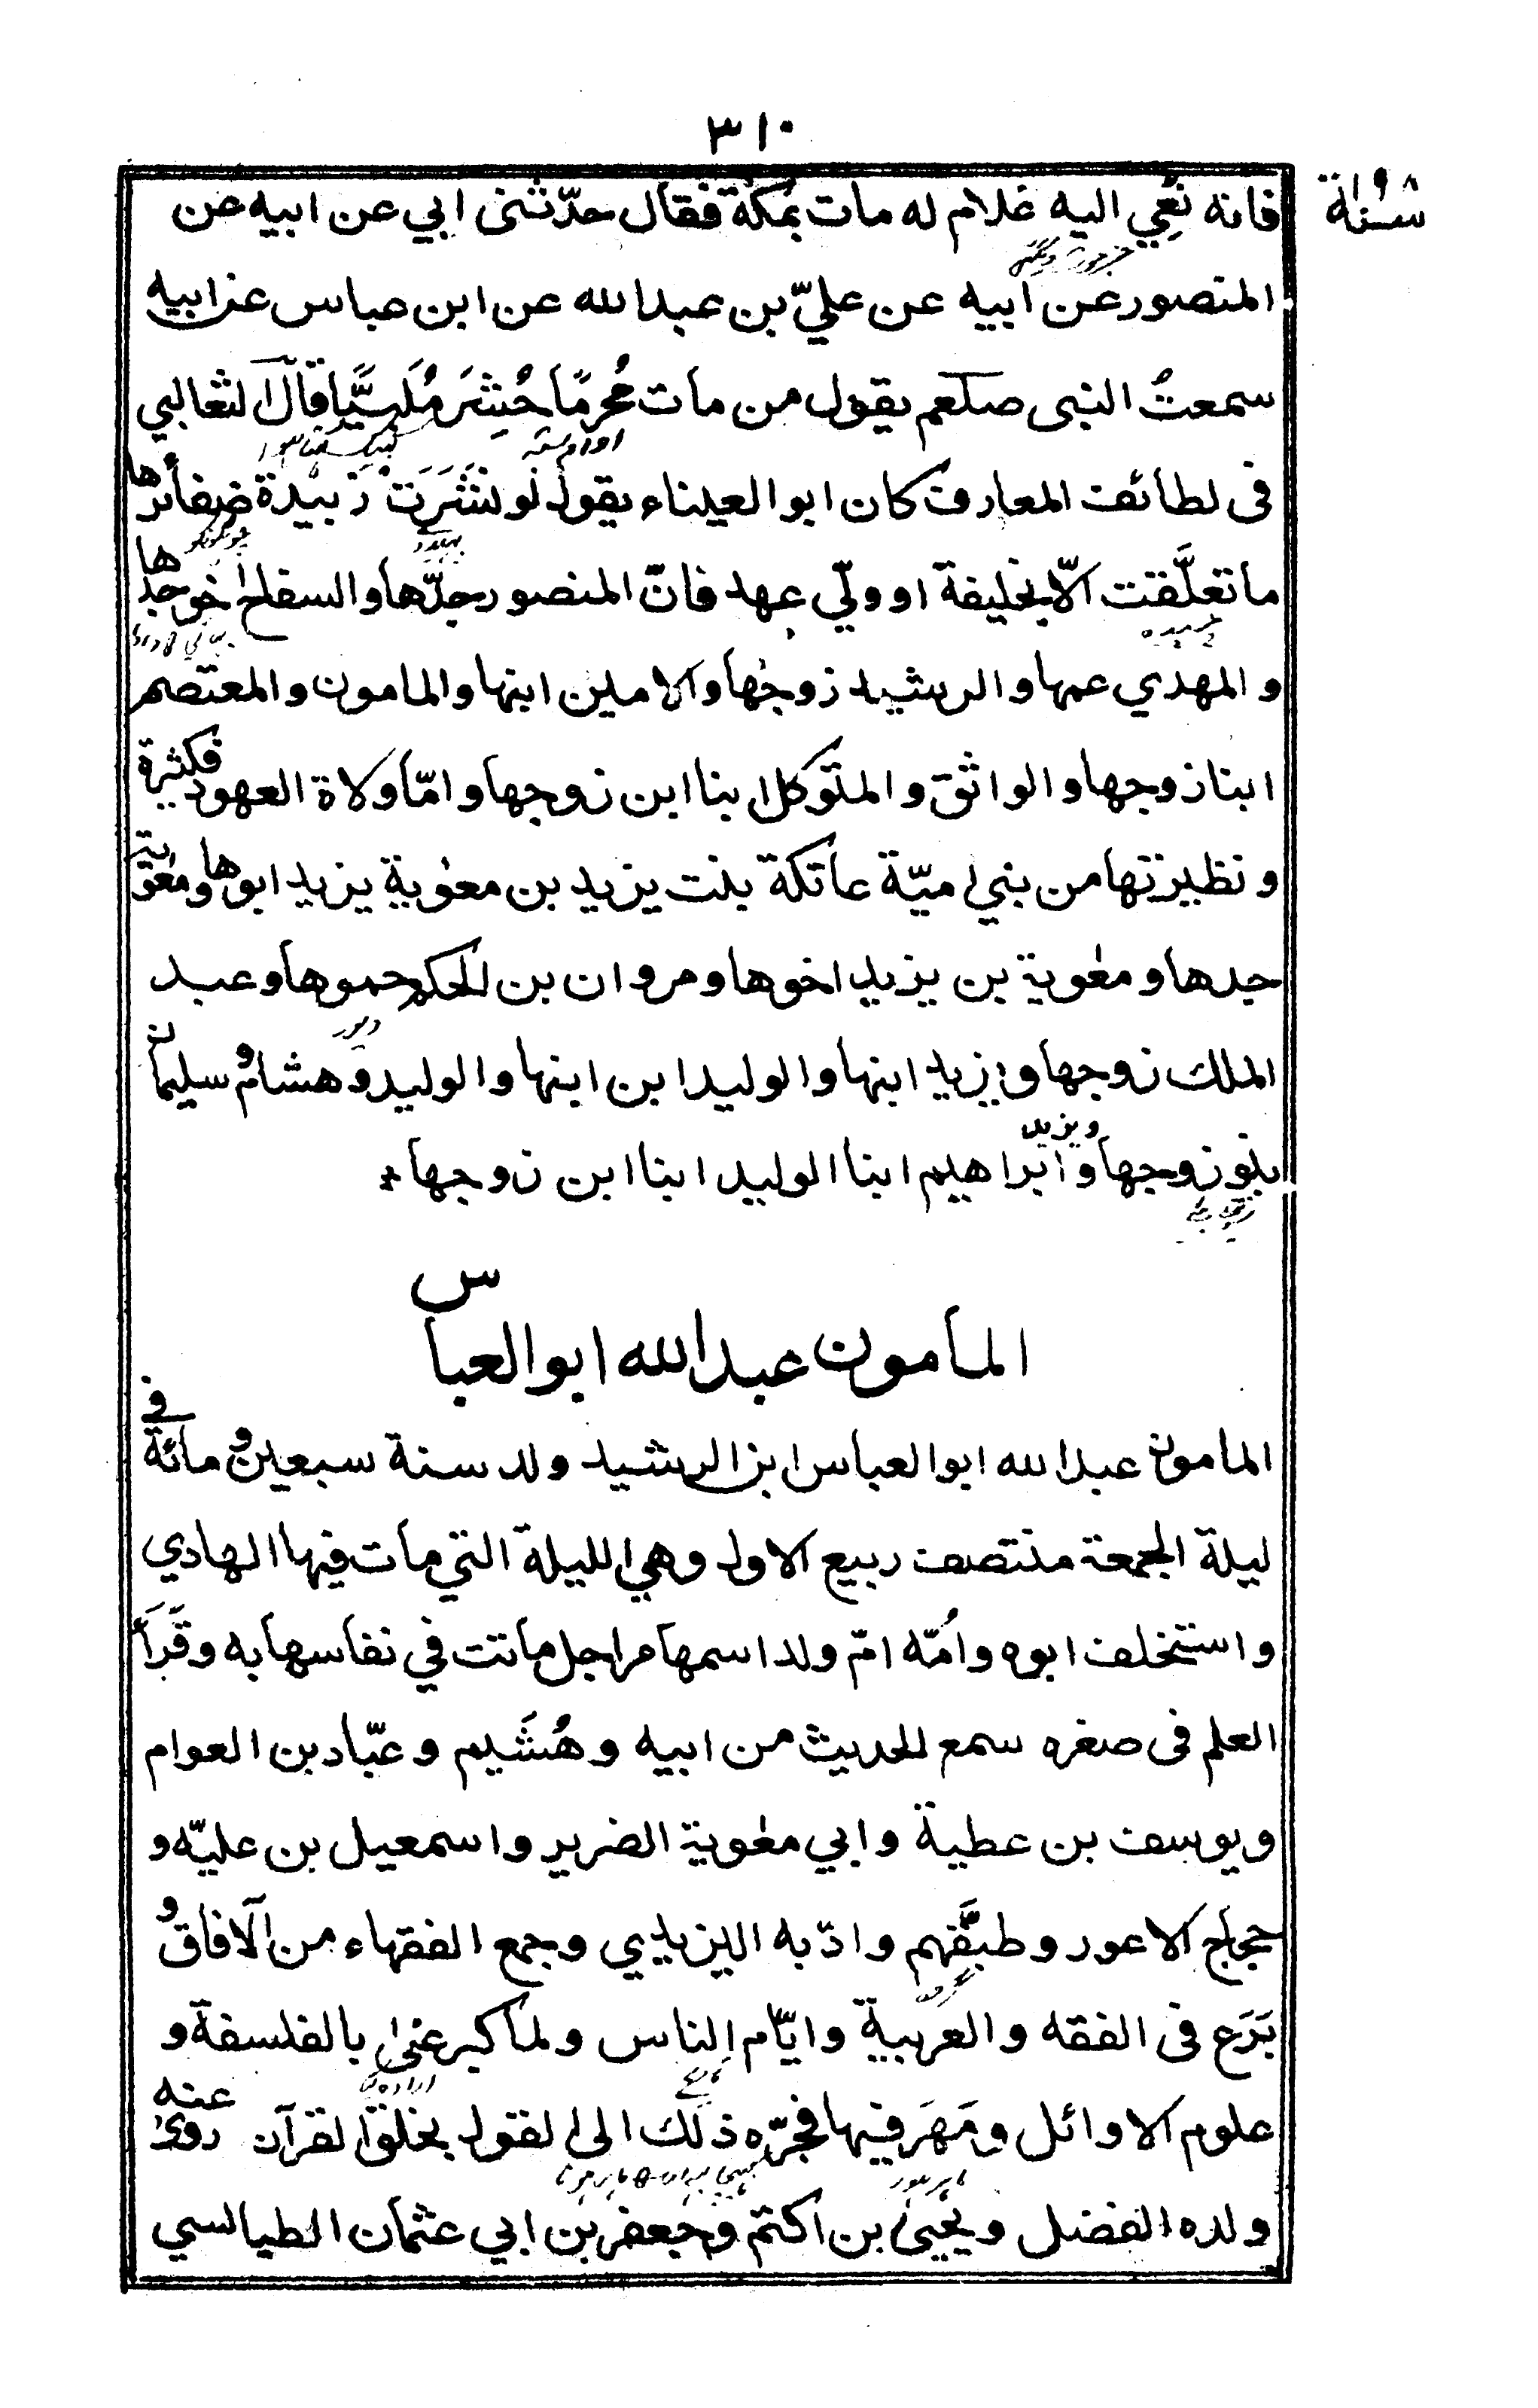 ٣١٠
فانه نُعِي اليه غلام له مات بمكة فقال حدّثنى ابي عن ابيه عن
المنصور عن ابيه عن عليّ بن عبد الله عن ابن عباس عن ابيه
سمعتُ النبى صلعم يقول من مات مُحرِمًا حُشِرَ مُلَبِّيًا قال الثعالبي
فى لطائف المعارف كان ابو العيناء يقول لو نشَرَت زبيدة ضفائرها
ما تعلَّقت الّا بخليفة او وليّ عهد فانّ المنصور جدّها والسفاح اخو جدها
و المهدي عمها و الرشيد زوجها و الامين ابنها و المامون و المعتصم
ابنا زوجها و الواثق و المتوكل ابنا ابن زوجها و امّا ولاة العهود فكثيرة
و نظيرتها من بني اميّة عاتكة بنت يزيد بن معٰوية يزيد ابوها و معٰوية
جدها و معٰوية بن يزيد اخوها و مروان بن الحكم حموها و عبد
الملك زوجها و يزيد ابنها و الوليد ابن ابنها و الوليد و هشام و سليمان
بنو زوجها و يزيد و ابراهيم ابنا الوليد ابنا ابن زوجها *
المأمون عبد الله ابو العباس
المامون عبد الله ابو العباس ابن الرشيد ولد سنة سبعين و مائة في
ليلة الجمعة منتصف ربيع الاول وهي الليلة التي مات فيها الهادي
و استخلف ابوه و امُّه امّ ولد اسمها مراجل ماتت في نفاسها به و قَرَأَ
العلم فى صغره سمع الحديث من ابيه و هُشَيم و عبّاد بن العوام
و يوسف بن عطية و ابي معٰوية الضرير و اسمعيل بن عليّه و
حجاج الاعور و طبقَتهم و ادّبه اليزيدي و جمع الفقهاء من الآفاق و
بَرَع فى الفقه و العربية و ايّام الناس و لما كبر عنى بالفلسفة و
علوم الاوائل و مَهَر فيها فجرّه ذلك الى القول بخلق القرآن روى عنه
ولده الفضل و يحيى بن اكثم و جعفر بن ابي عثمان الطيالسي